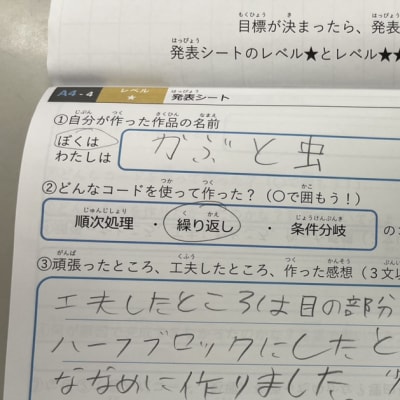 目標が決まったら、発表
発表シートのレベル★とレベル★★
A4-4 レベル★ 発表シート
①自分が作った作品の名前
ぼくは
わたしは
かぶと虫
②どんなコードを使って作った？（○で囲もう！）
順次処理 ・ 繰り返し ・ 条件分岐 の
③頑張ったところ、工夫したところ、作った感想（3文以
工夫したところは目の部分
ハーフブロックにしたと
ななめに作りました。